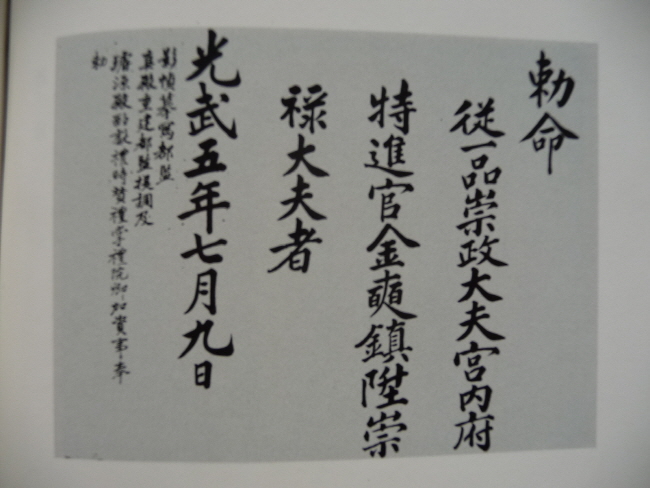 勅命
從一品崇政大夫宮内府
特進官金奭鎮陞崇
祿大夫者
光武五年七月九日
影幀摹寫都監
真殿重建都監提調及
璿源殿酌獻禮時贊禮掌禮院卿加資事奉
勅